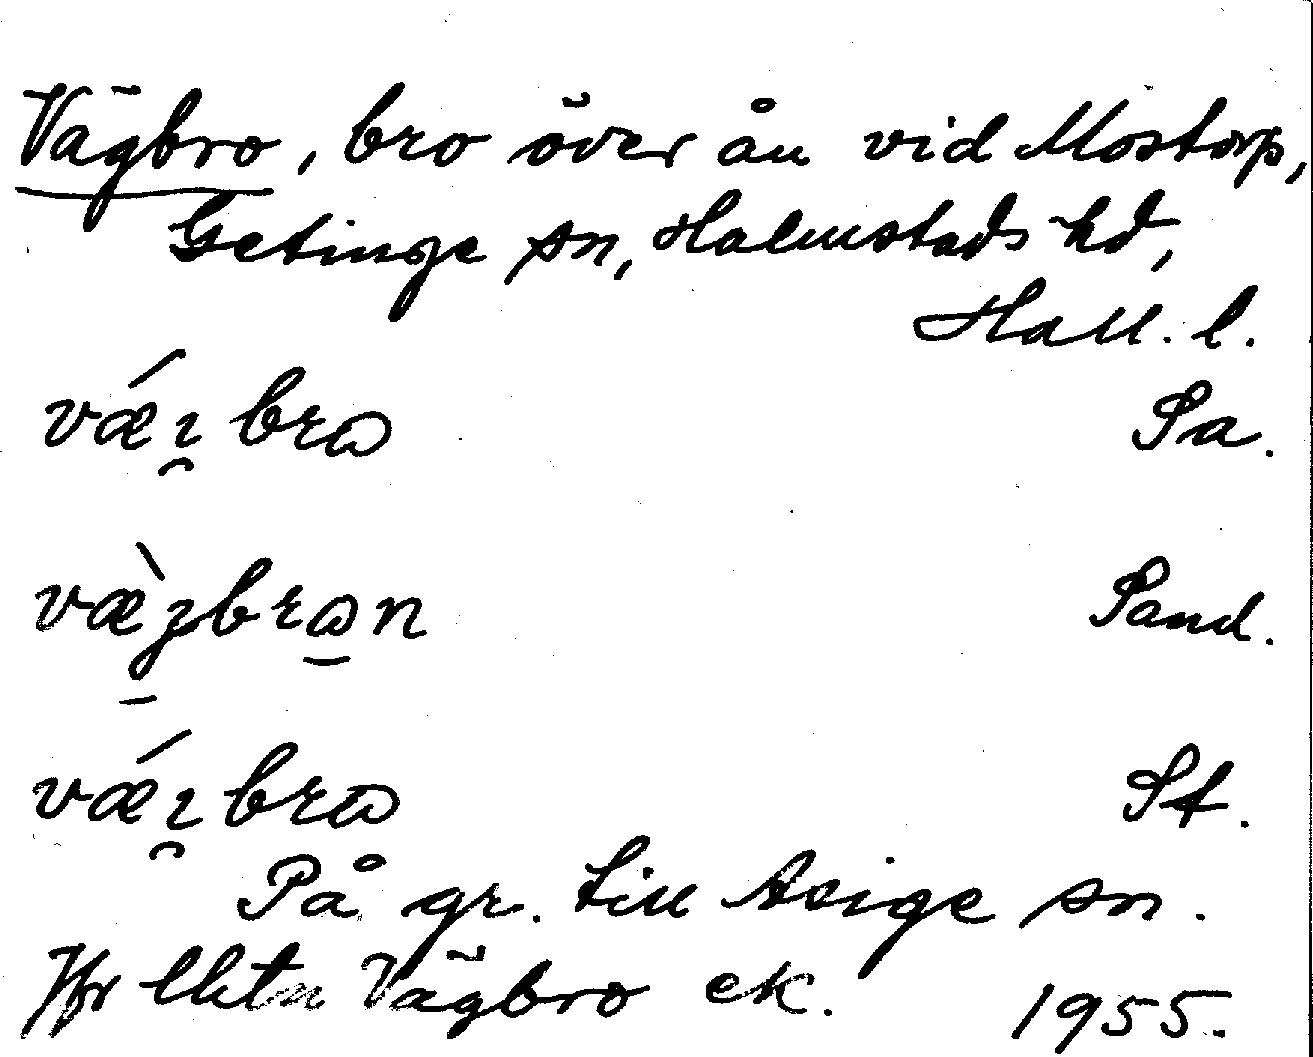 Vägbro, bro över ån vid Mostorp,
Getinge sn, Halmstads hd,
Hall. l.
vǽı̯bra Sa.
væ̀ʒbran Sand.
vǽı̯bra St.
På gr. till Asige sn.
Jfr Vägbro ek. 1955.